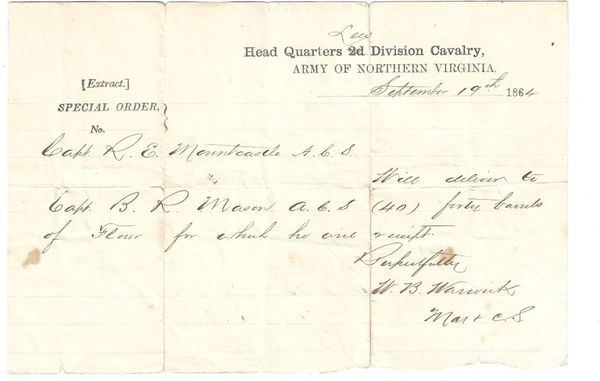 Lees
Head Quarters 2d Division Cavalry,
ARMY OF NORTHERN VIRGINIA,
September 19th 1864
[Extract.]
SPECIAL ORDER,
No.
Capt. R. E. Mountcastle A. C. S.
Will deliver to
Capt. B. R. Mason A. C. S (40) forty barrels
of Flour for which he will receipt.
Respectfully
W. B. Warwick
Maj & C. S